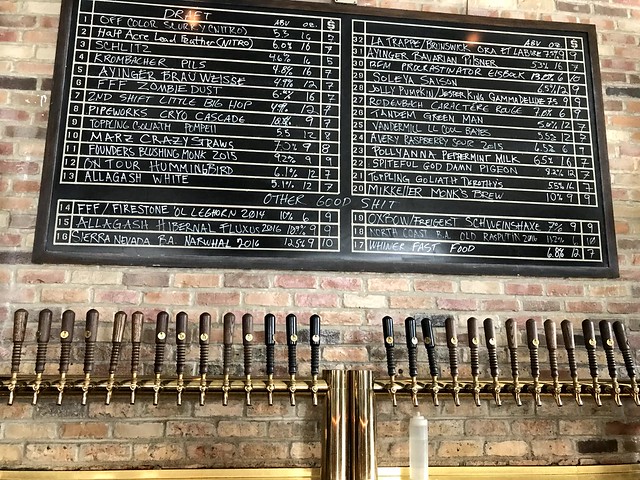 DRAFT ABV OZ. $
1 OFF COLOR SLURKY (NITRO) 5.3 16
2 Half Acre Lead Feather (NITRO) 6.0% 16 7
3 SCHLITZ 4.6% 16 5
4 KROMBACHER PILS 4.8% 16 7
5 AYINGER BRAU WEISSE 12 7
6 FFF ZOMBIE DUST 16 7
7 2ND SHIFT LITTLE BIG HOP
8 PIPEWORKS CRYO CASCADE 9 7
9 TOPPLING GOLIATH POMPEII 5.5 12 8
10 MARZ CRAZY STRAWS 9 8
11 FOUNDERS BLUSHING MONK 2015 9.2% 9 9
12 ON TOUR HUMMINGBIRD 6.1% 12 7
13 ALLAGASH WHITE 5.1% 12 7
ABV OZ. $
32 LA TRAPPE/BRUNSWICK ORA ET LABORE 7.5% 9
31 AYINGER BAVARIAN PILSNER 5.3% 16 7
30 PROCRASTINATOR EISBOCK 6
29 SOLEVA SAISON 6.5% 12
28 JOLLY PUMPKIN/JESTER KING GAMMADELUXE 7.5 9 9
27 RODENBACH CARACTÈRE ROUGE 7.0% 6 9
26 TANDEM GREEN MAN
25 VANDERMILL LL COOL BATES 5.0% 12 7
24 AVERY RASPBERRY SOUR 2015 6.5% 6
23 POLLYANNA PEPPERMINT MILK 6.5% 16 7
22 SPITEFUL GOD DAMN PIGEON 9.2% 12 7
21 TOPPLING GOLIATH DOROTHY'S 5.5% 16 7
20 MIKKELLER MONK'S BREW 10% 9 9
OTHER GOOD SHIT
14 FFF/FIRESTONE 'OL LEGHORN 2014 10% 6 9
15 ALLAGASH HIBERNAL FLUXUS 2016 9 9
16 SIERRA NEVADA B.A. NARWHAL 2016 12.5% 9 10
19 OXBOW/FREIGEIST SCHWEINSHAXE 7% 9 9
18 NORTH COAST B.A. OLD RASPUTIN 2016 11.2% 6 10
17 WHINER FAST FOOD 6.8% 12 7